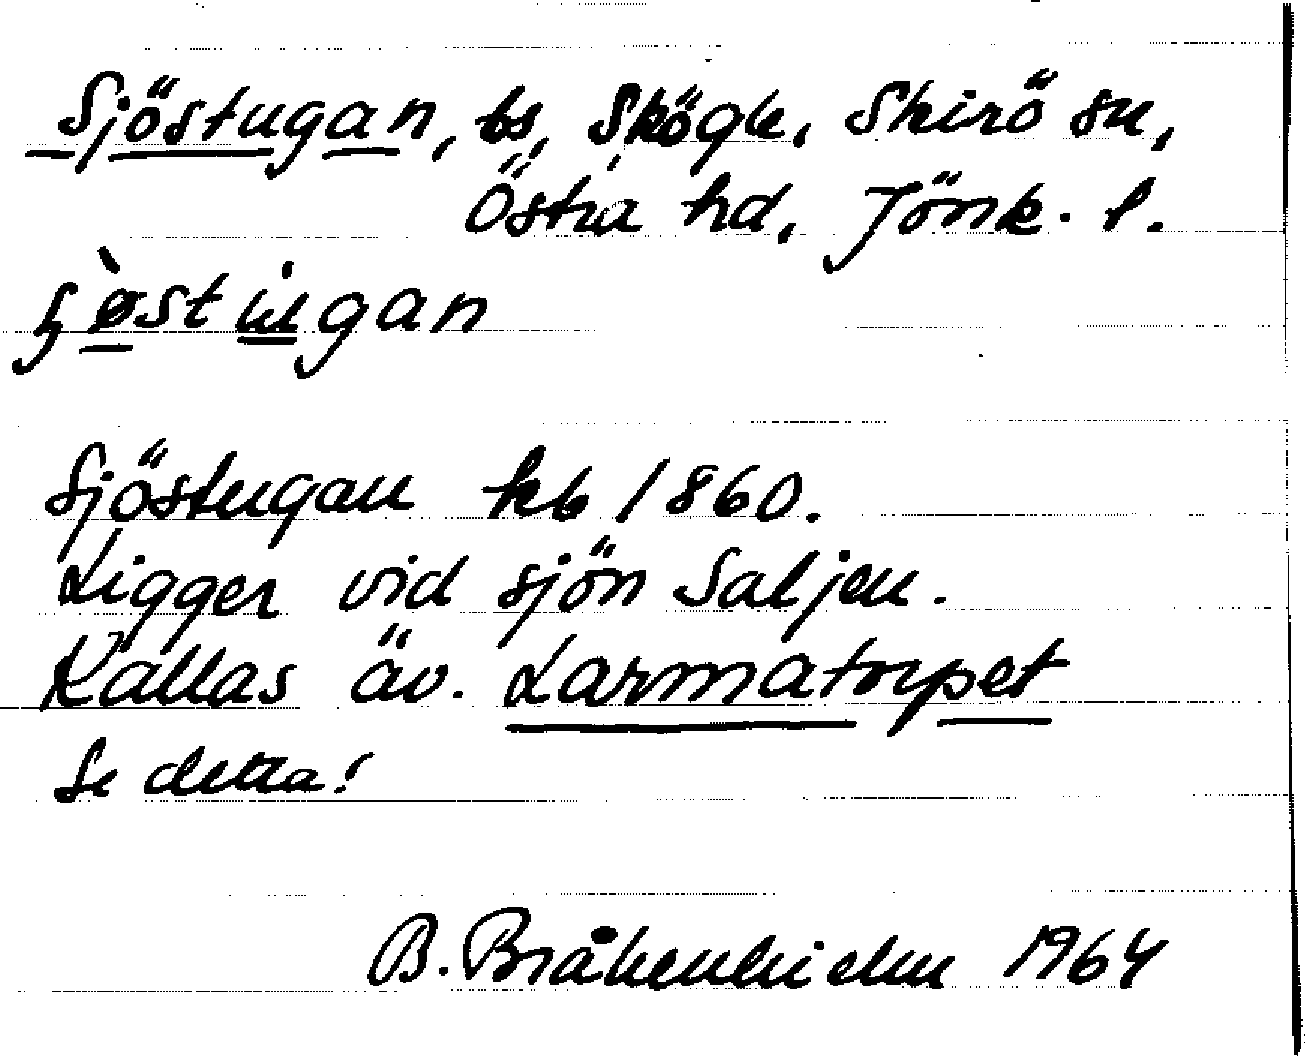 Sjöstugan, bs, Skögle, Skirö sn,
Östra hd, Jönk. l.
Sjöstugan kb 1860.
Ligger vid sjön Saljen.
Kallas äv. Larmatorpet
Se detta!
B. Bråkenhielm 1964